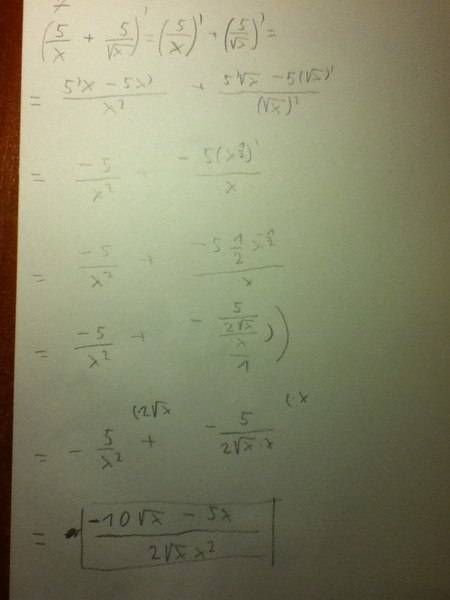 (5/x + 5/√x)' = (5/x)' + (5/√x)' =
= (5'x - 5x')/x² + (5'√x - 5(√x)')/(√x)²
= -5/x² + -5(x^(1/2))'/x
= -5/x² + (-5 1/2 x^(-1/2))/x
= -5/x² + -(5/(2√x))/(x/1) ))
(·2√x (·x
= -5/x² + -5/(2√x·x)
= (-10√x - 5x)/(2√x x²)